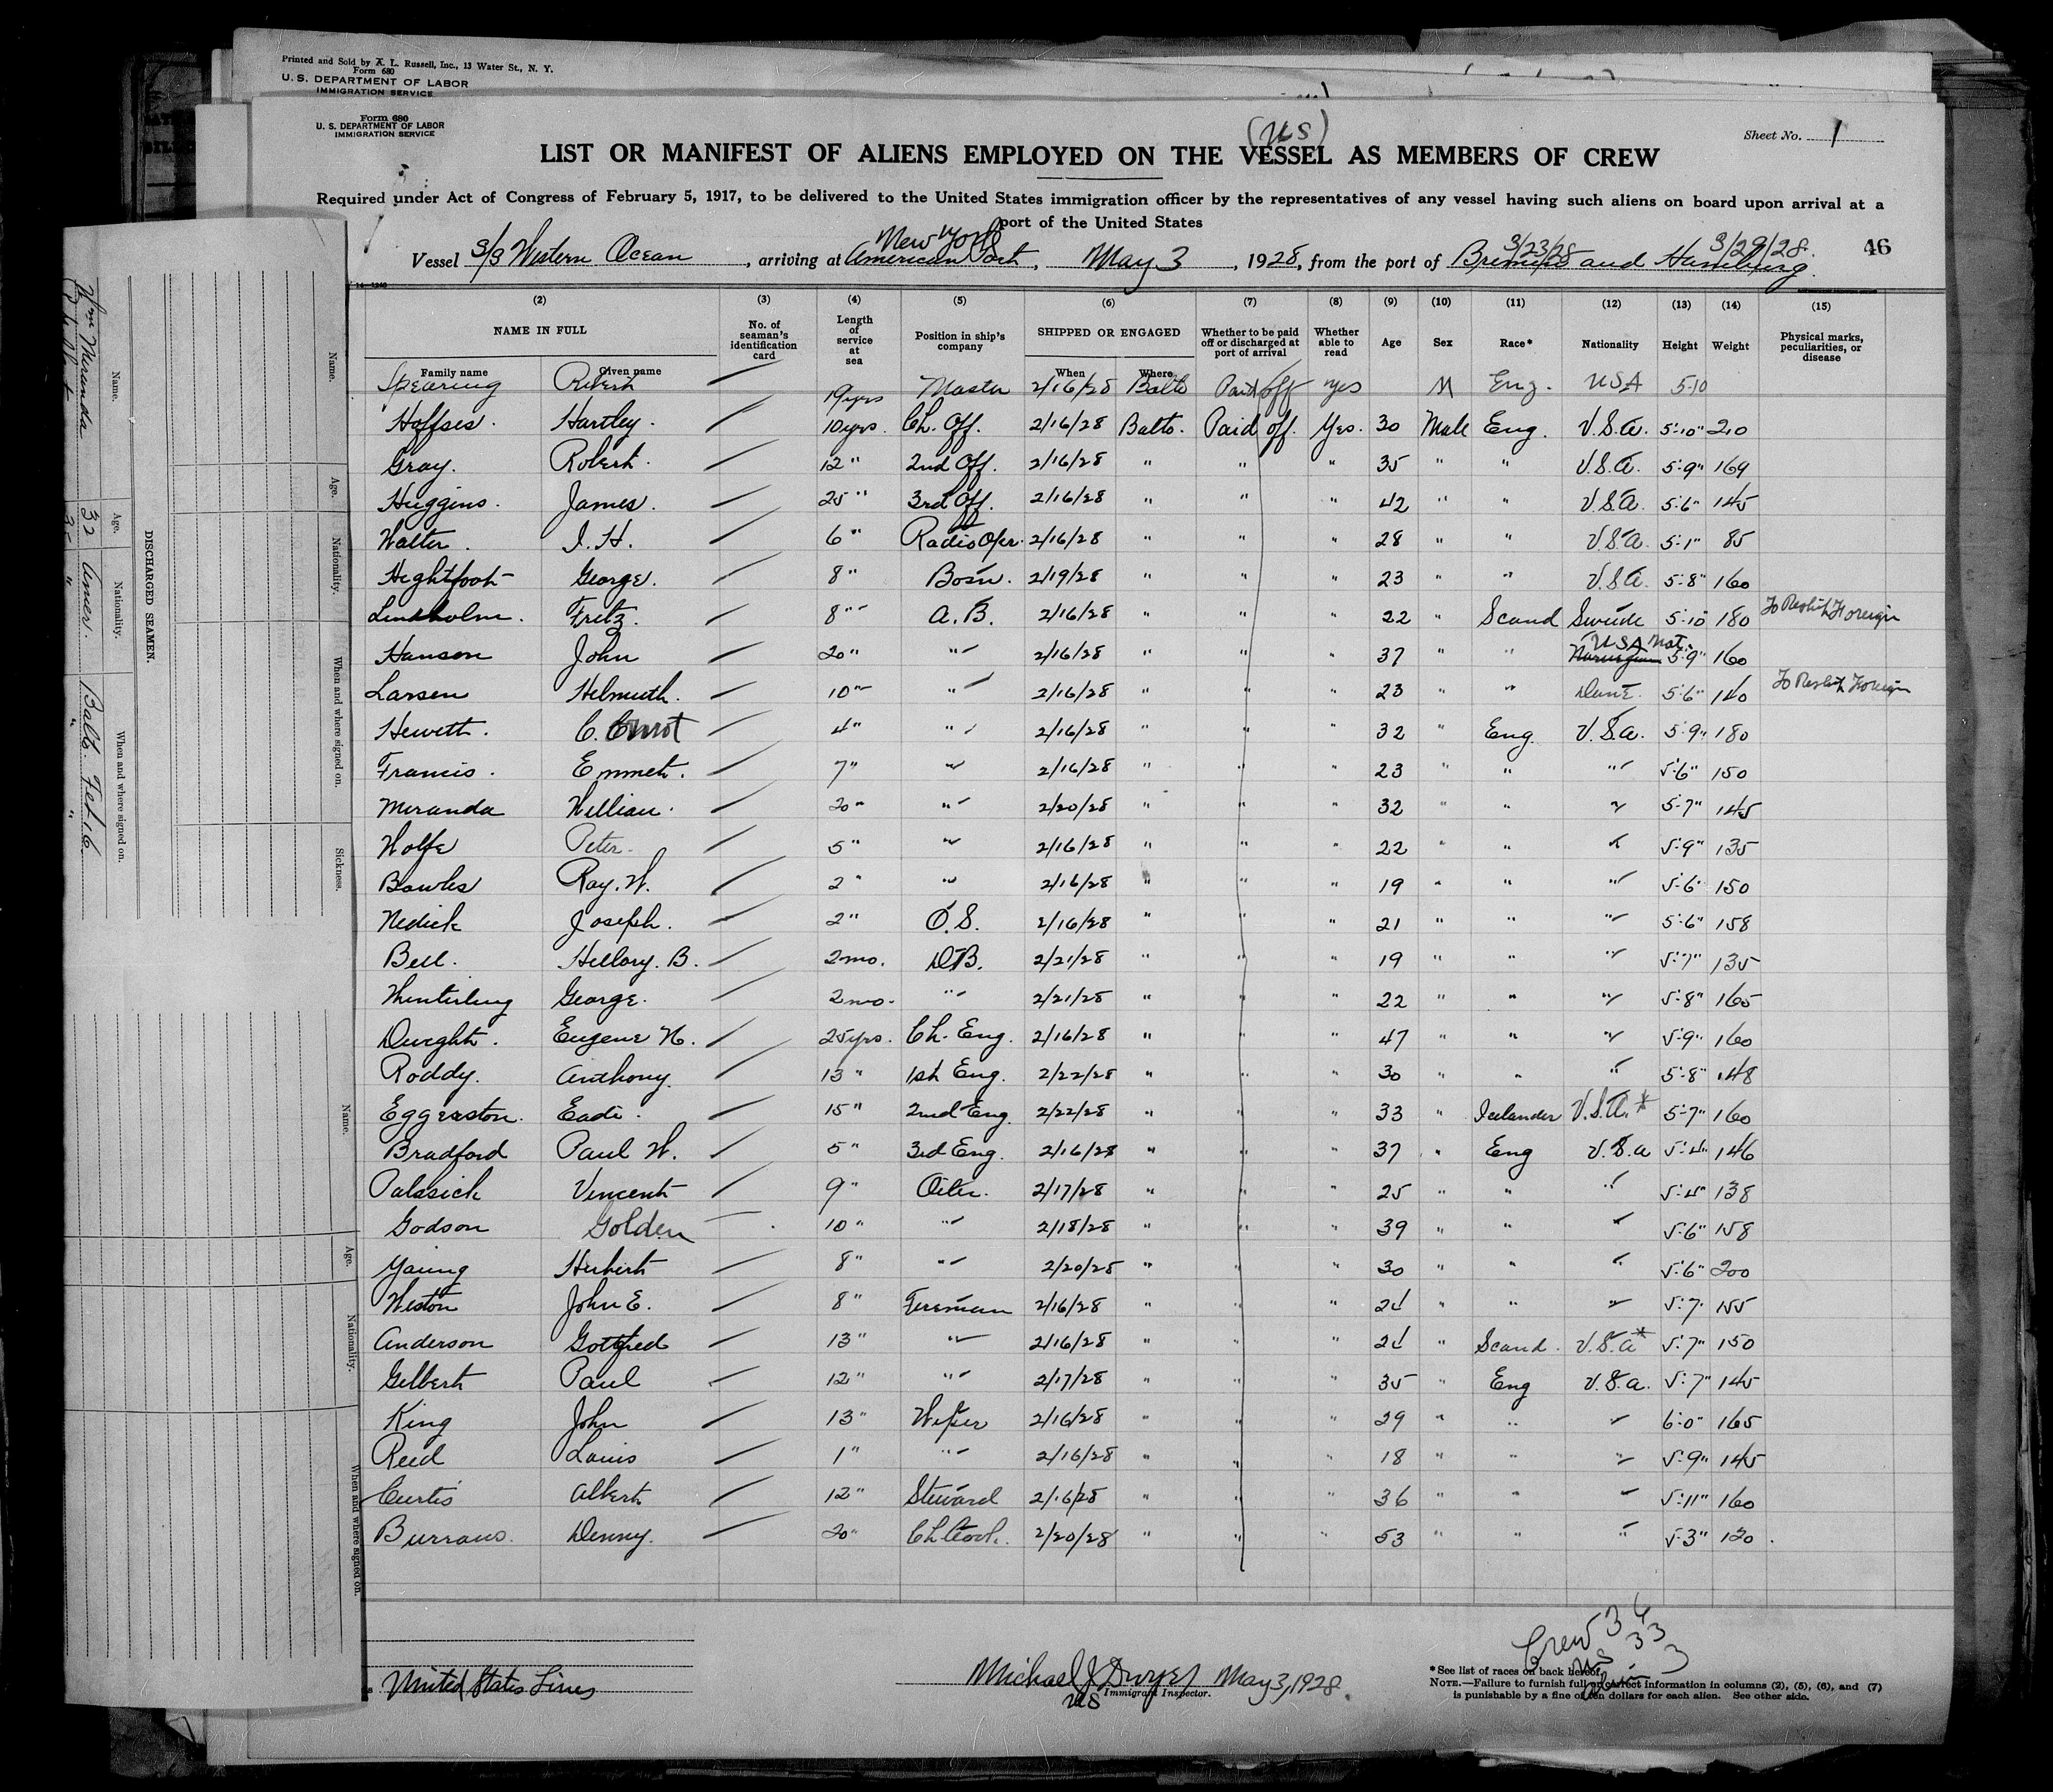 Printed and Sold by A. L. Russell, Inc., 13 Water St., N. Y.
Form 680
U. S. DEPARTMENT OF LABOR
IMMIGRATION SERVICE
Form 680
U. S. DEPARTMENT OF LABOR
IMMIGRATION SERVICE
(US)
Sheet No. 1
LIST OR MANIFEST OF ALIENS EMPLOYED ON THE VESSEL AS MEMBERS OF CREW
Required under Act of Congress of February 5, 1917, to be delivered to the United States immigration officer by the representatives of any vessel having such aliens on board upon arrival at a
port of the United States
New York 3/23/28 3/29/28
Vessel S/S Western Ocean, arriving at American Port, May 3, 1928, from the port of Bremen and Hamburg. 46
(2) (3) (4) (5) (6) (7) (8) (9) (10) (11) (12) (13) (14) (15)
NAME IN FULL No. of seaman's identification card Length of service at sea Position in ship's company SHIPPED OR ENGAGED Whether to be paid off or discharged at port of arrival Whether able to read Age Sex Race* Nationality Height Weight Physical marks, peculiarities, or disease
Family name Given name When Where
Spearing Robert 19yrs Master 2/16/28 Balto Paid off yes M Eng. USA 5-10
Hoffses. Hartley. 10yrs. Ch. Off. 2/16/28 Balto. Paid off. Yes. 30 Male Eng. U.S.A. 5'-10" 210
Gray. Robert. 12 " 2nd Off. 2/16/28 " " " 35 " " U.S.A. 5'-9" 169
Huggins. James. 25 " 3rd Off. 2/16/28 " " " 42 " " U.S.A. 5'-6" 145
Walter. I. H. 6 " Radio Oper. 2/16/28 " " " 28 " " U.S.A. 5'-1" 85
Hightfoot George. 8 " Bosn. 2/19/28 " " " 23 " " U.S.A. 5'-8" 160
Lindholm. Fritz. 8 " A. B. 2/16/28 " " " 22 " Scand Swede 5'-10 180 To Reship Foreign
Hanson John 20 " " 2/16/28 " " " 37 " " Norwegian USA Nat. 5'-9" 160
Larsen Helmuth. 10 " " 2/16/28 " " " 23 " " Dane. 5'-6" 140 To Reship Foreign
Hewett. C. 4 " " 2/16/28 " " " 32 " Eng. U.S.A. 5'-9" 180
Francis. Emmet. 7 " " 2/16/28 " " " 23 " " " 5'-6" 150
Miranda William. 20 " " 2/20/28 " " " 32 " " " 5'-7" 145
Wolfe Peter. 5 " " 2/16/28 " " " 22 " " " 5'-9" 135
Bowles Ray. W. 2 " " 2/16/28 " " " 19 " " " 5'-6" 150
Nedick Joseph. 2 " O. S. 2/16/28 " " " 21 " " " 5'-6" 158
Bell. Hillory. B. 2mo. D.B. 2/21/28 " " " 19 " " " 5'-7" 135
Winterling George. 2mo. " 2/21/28 " " " 22 " " " 5'-8" 165
Dwight. Eugene N. 25yrs. Ch. Eng. 2/16/28 " " " 47 " " " 5'-9" 160
Roddy. Anthony. 13 " 1st Eng. 2/22/28 " " " 30 " " " 5'-8" 148
Eggerston. Eadi. 15 " 2nd Eng 2/22/28 " " " 33 " Icelander U.S.A.* 5'-7" 160
Bradford Paul W. 5 " 3rd Eng. 2/16/28 " " " 37 " Eng U.S.A 5'-4" 146
Palasick Vincent 9 " Oiler. 2/17/28 " " " 25 " " " 5'-4" 138
Godson Golden 10 " " 2/18/28 " " " 39 " " " 5'-6" 158
Young Herbert 8 " " 2/20/28 " " " 30 " " " 5'-6" 200
Weston John E. 8 " Fireman 2/16/28 " " " 24 " " " 5'-7" 155
Anderson Gottfried 13 " " 2/16/28 " " " 24 " Scand. U.S.A* 5'-7" 150
Gilbert Paul 12 " " 2/17/28 " " " 35 " Eng U.S.A. 5'-7" 145
King John 13 " Wiper 2/16/28 " " " 29 " " " 6'-0" 165
Reed Louis 1 " " 2/16/28 " " " 18 " " " 5'-9" 145
Curtis Albert 12 " Steward 2/16/28 " " " 36 " " " 5'-11" 160
Burrows. Denny. 20 " Ch. Cook. 2/20/28 " " " 53 " " " 5'-3" 120.
Crew 36
US 33
Alien 3
United States Lines
Michael J. Dwyer May 3, 1928.
Immigrant Inspector.
US
*See list of races on back hereof.
NOTE.—Failure to furnish full or correct information in columns (2), (5), (6), and (7)
is punishable by a fine of ten dollars for each alien. See other side.
DISCHARGED SEAMEN.
Name. Age. Nationality. When and where signed on.
Wm Miranda 32 Amer. Balt. Feb 16
35 " " "
Name. Age. Nationality. When and where signed on. Sickness.
Name. Age. Nationality. When and where signed on.